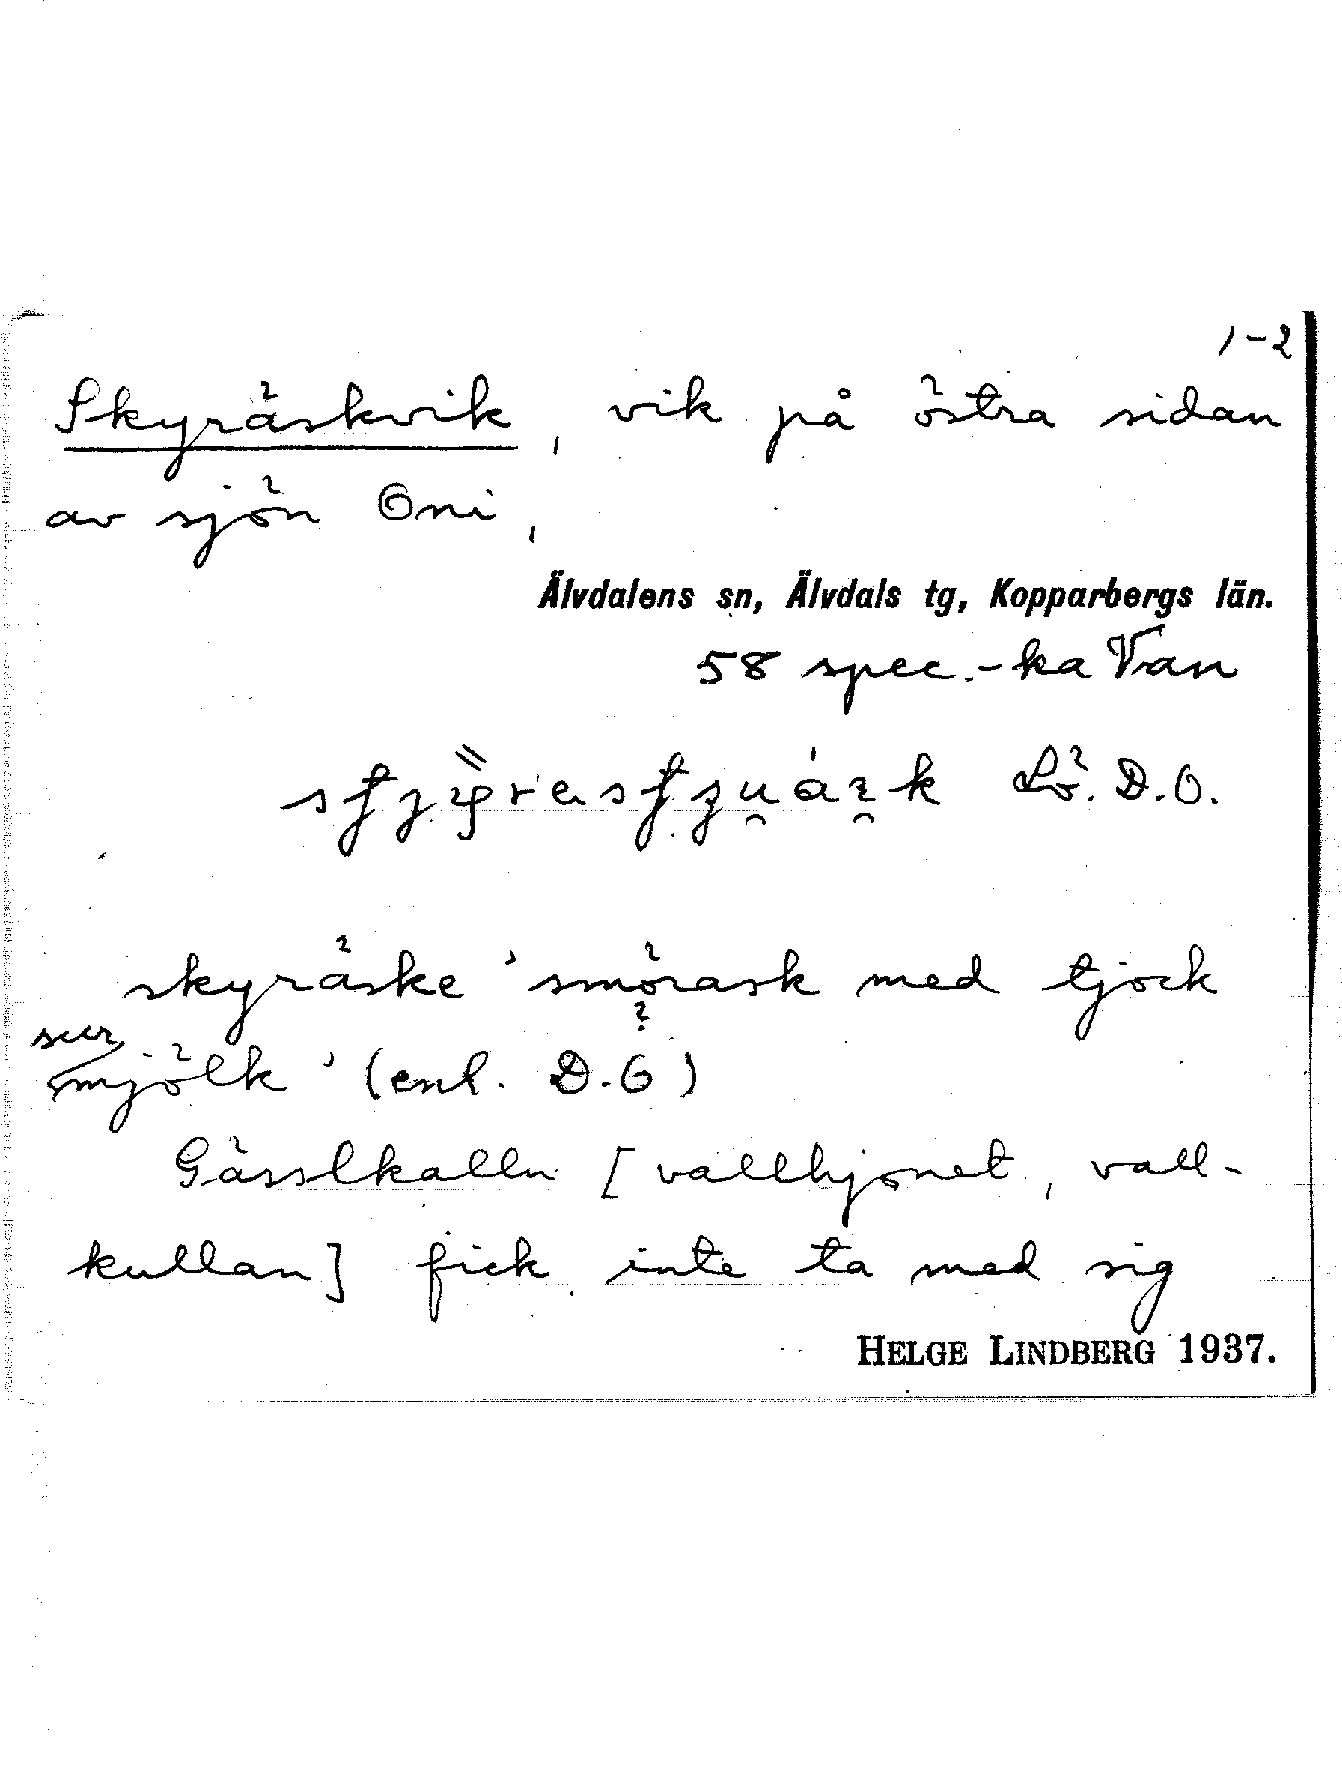 1-2
Skyräskvik, vik på östra sidan
av sjön Oni,
Älvdalens sn, Älvdals tg, Kopparbergs län.
58 spec.-ka Van
Lö. D.O.
skyräske 'smörask med tjock
sur
mjölk' (enl. D.O)
?
Gässlkalln [vallhjonet, vall-
kullan] fick inte ta med sig
HELGE LINDBERG 1937.